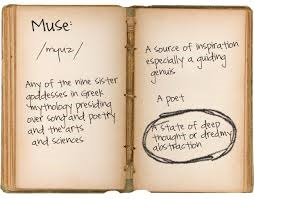 Muse:
/myuz/
Any of the nine sister
goddesses in Greek
mythology presiding
over song and poetry
and the arts
and sciences
A source of inspiration
especially a guiding
genuis
A poet
A state of deep
thought or dredmy
abstraction